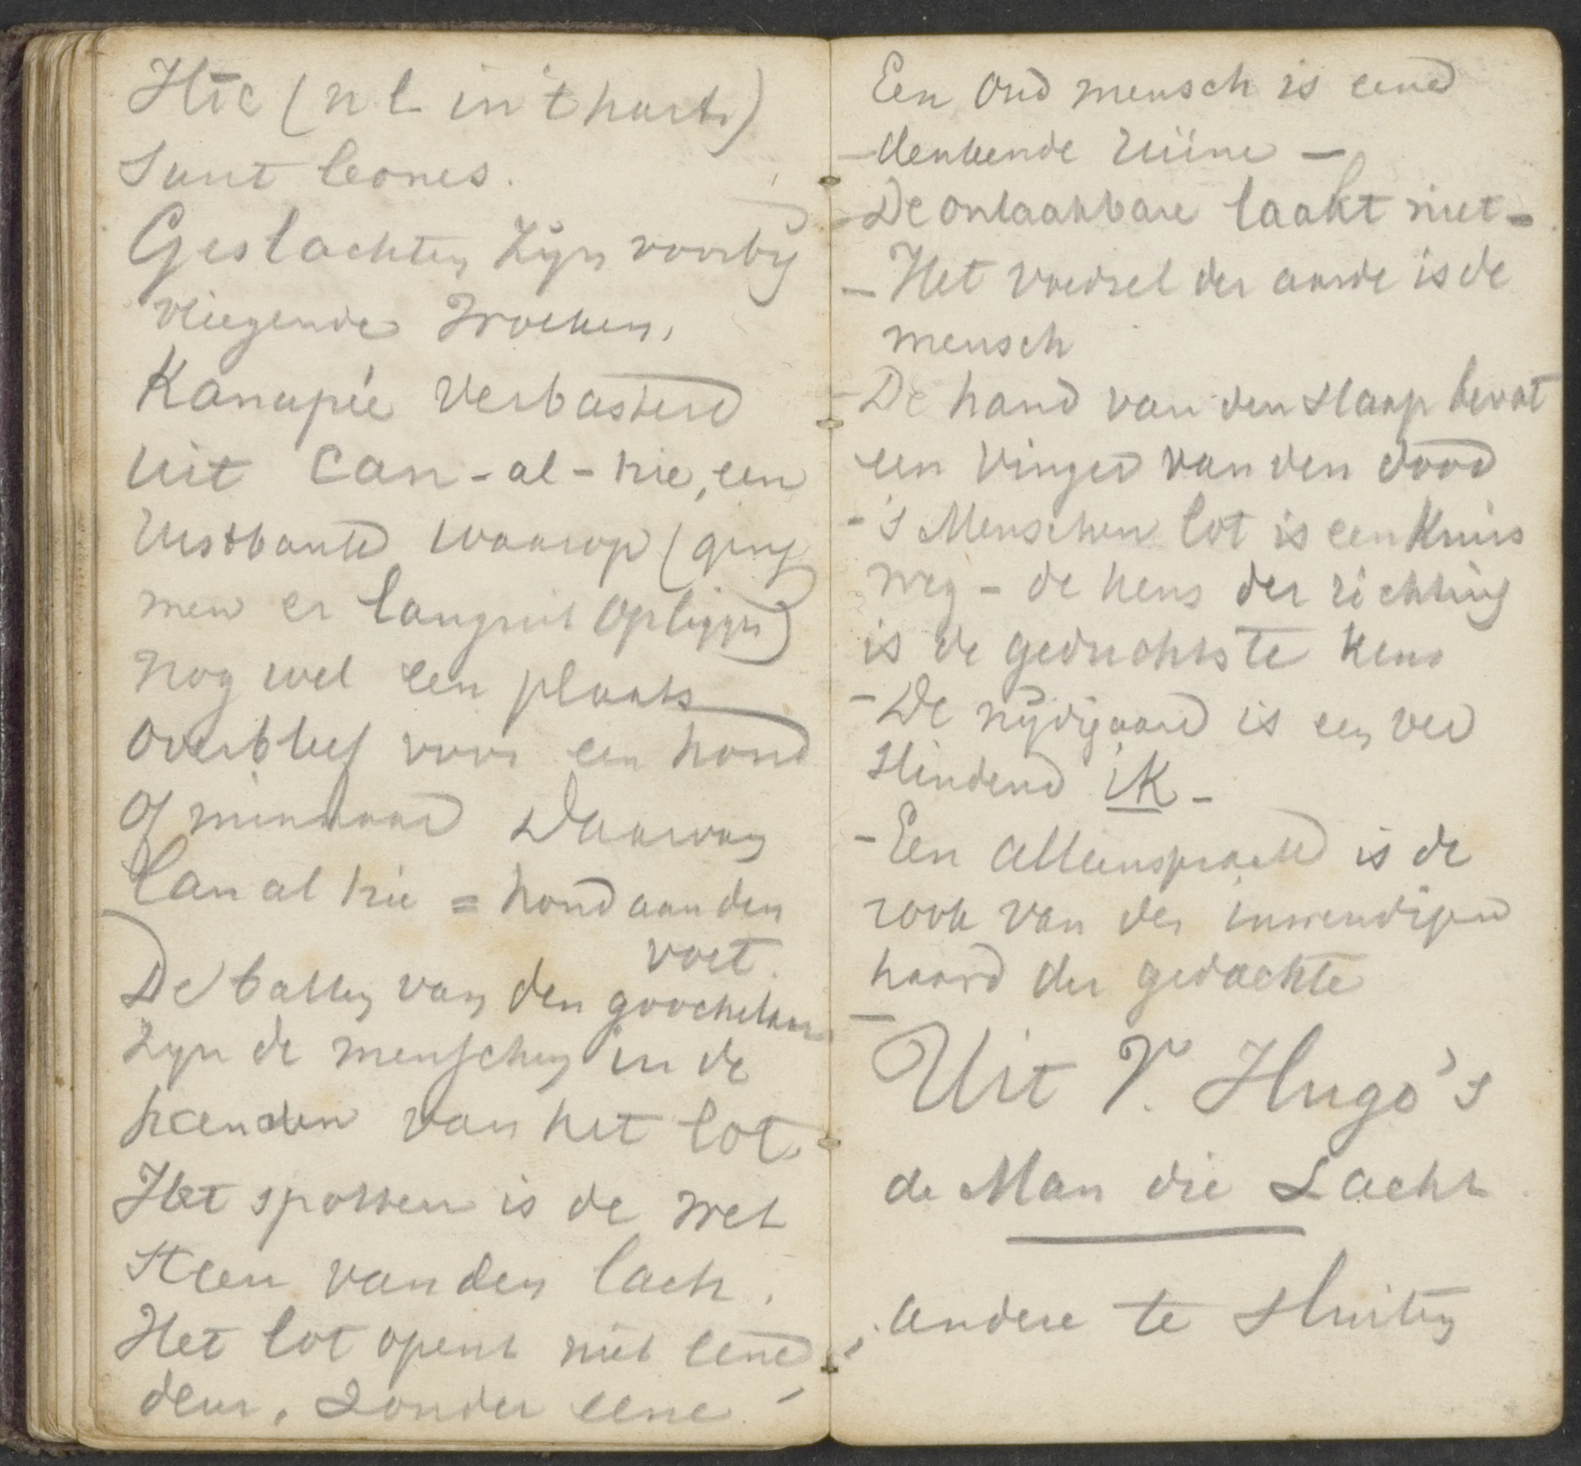 Hic (nl in 't hart)
Sunt leones.
Geslachten zijn voorbij
vliegende wolken,
Kanapée verbasterd
uit Can-al-hie, een
rustbank waarop (ging
men er languit op liggen)
nog wel een plaats
overbleef voor een hond
of minnaar Daarvan
Can al hie = hond aan den
voet.
De ballen van den goochelaar
zijn de menschen in de
handen van het lot
Het spotten is de wet
steen van den lach.
Het lot opent niet eene
deur, zonder eene
Een oud mensch is eene
- denkende ruïne -
- De onlaakbare laakt niet -
- Het voedsel der aarde is de
mensch
- De hand van den slaap bevat
een vinger van den dood
- 's Menschen lot is een kruis
weg - de keus der richting
is de geduchtste keus
- De nijdigaard is een ver
slindend ik -
- Een alleenspraak is de
rook van den inwendigen
haard der gedachte
-
Uit V. Hugo's
de Man die Lacht
, andere te sluiten